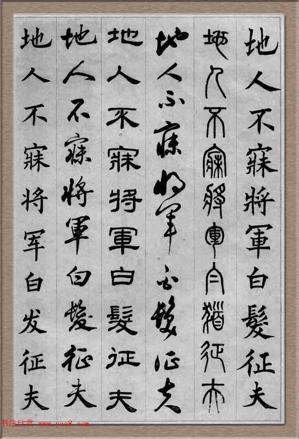 地人不寐將軍白髮征夫
地人不寐將軍白髮征夫
地人不寐将军白髮征夫
地人不寐將軍白髮征夫
地人不寐將軍白髮征夫
地人不寐将军白发征夫